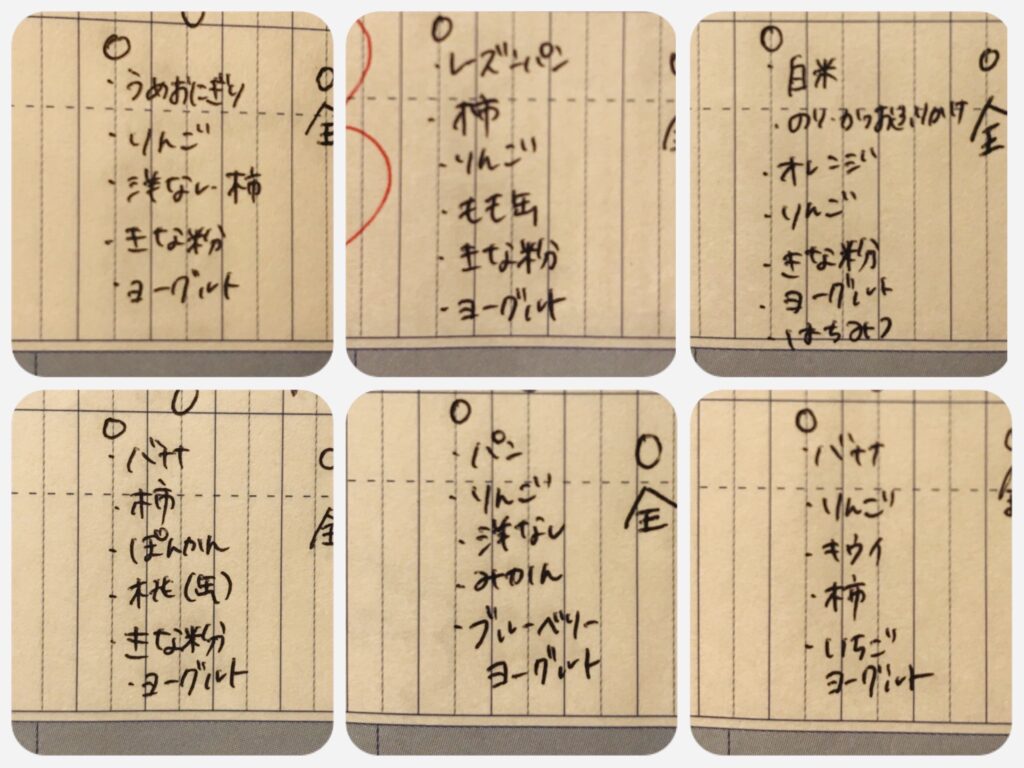 ・うめおにぎり
・りんご
・洋なし・柿
・きな粉
・ヨーグルト
・レーズンパン
・柿
・りんご
・もも缶
・きな粉
・ヨーグルト
・白米
・のり・かつおふりかけ
・オレンジ
・りんご
・きな粉
・ヨーグルト
・はちみつ
全
・バナナ
・柿
・ぽんかん
・桃(缶)
・きな粉
・ヨーグルト
・パン
・りんご
・洋なし
・みかん
・ブルーベリー
ヨーグルト
全
・バナナ
・りんご
・キウイ
・柿
・いちご
ヨーグルト